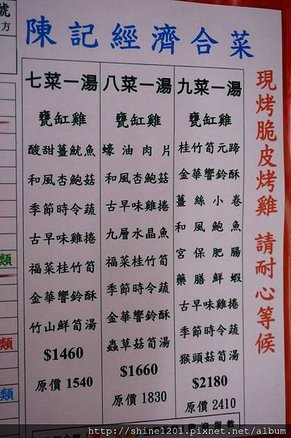 號
方
陳記經濟合菜
七菜一湯
甕缸雞
酸甜薑魷魚
和風杏鮑菇
季節時令蔬
古早味雞捲
福菜桂竹筍
金華響鈴酥
竹山鮮筍湯
$1460
原價 1540
八菜一湯
甕缸雞
蠔油肉片
和風杏鮑菇
古早味雞捲
九層水晶魚
福菜桂竹筍
季節時令蔬
金華響鈴酥
蟲草菇筍湯
$1660
原價 1830
九菜一湯
甕缸雞
桂竹筍元蹄
金華響鈴酥
薑絲小卷
和風鮑魚
宮保肥腸
藥膳鮮蝦
古早味雞捲
季節時令蔬
猴頭菇筍湯
$2180
原價 2410
現烤脆皮烤雞 請耐心等候
類
類
類
http://shine1201.pixnet.net/album